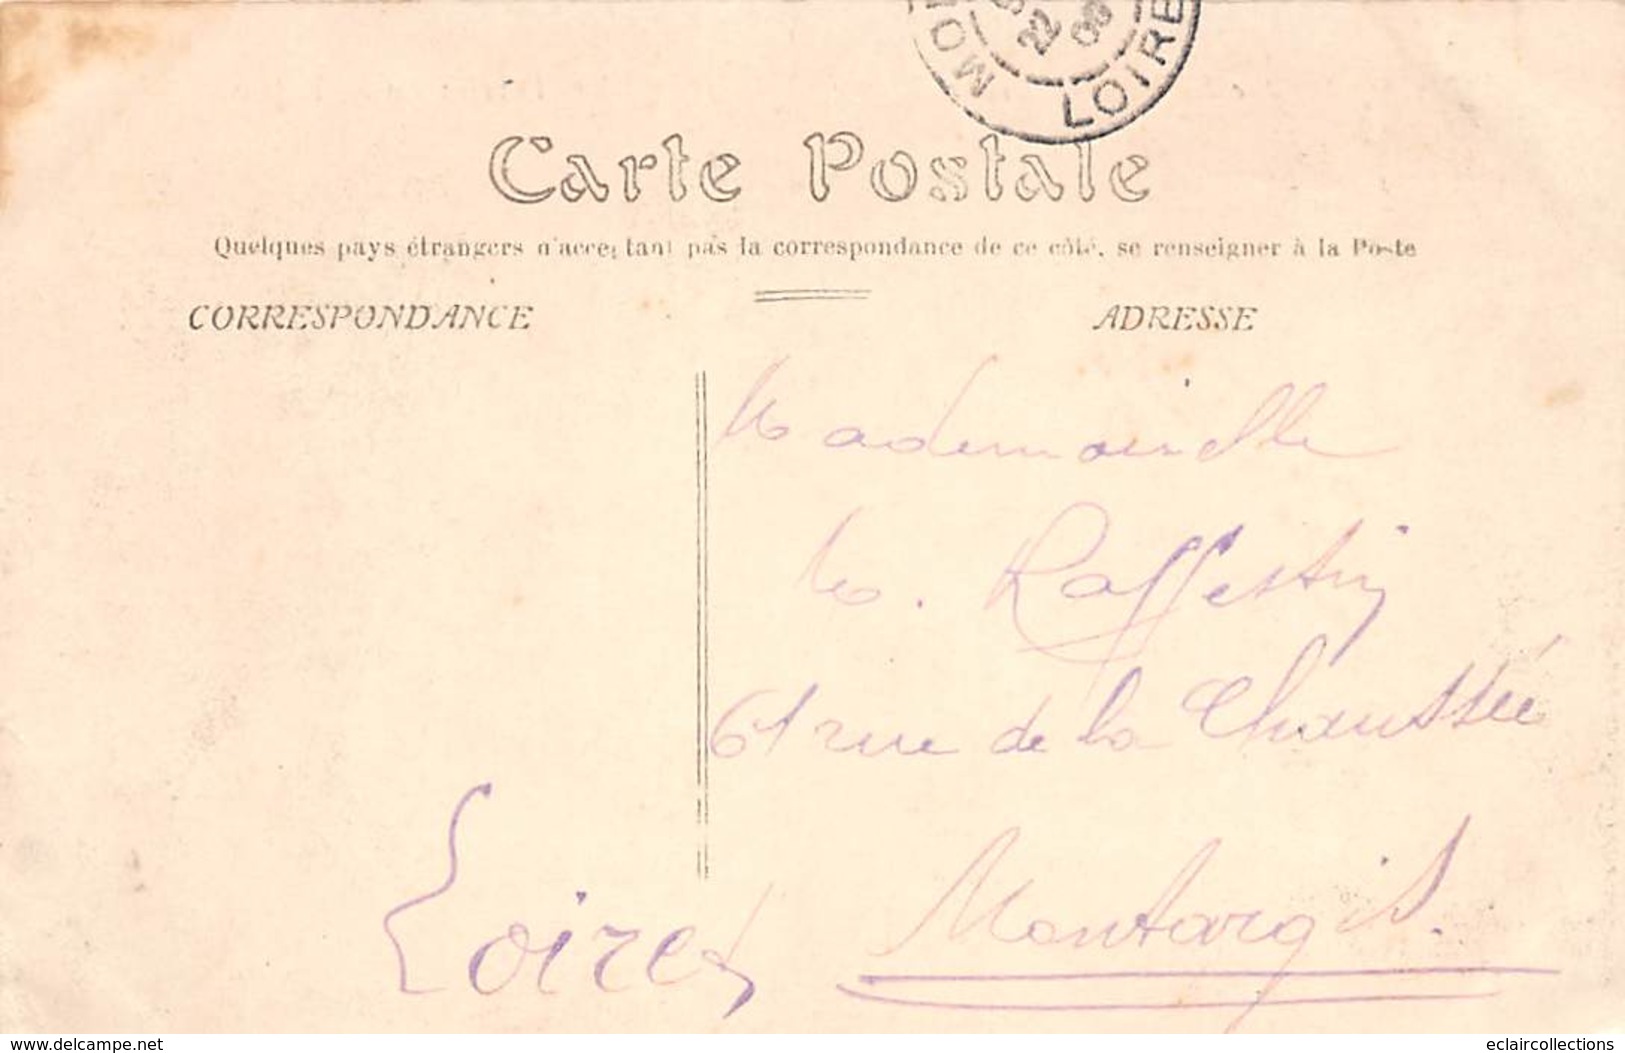 LOIRE
22
Carte Postale
Quelques pays étrangers n'acceptant pas la correspondance de ce côté, se renseigner à la Poste
CORRESPONDANCE
ADRESSE
Mademoiselle
M. Raffestin
61 rue de la Chaussée
Montargis.
Loiret
www.delcampe.net
eclaircollections